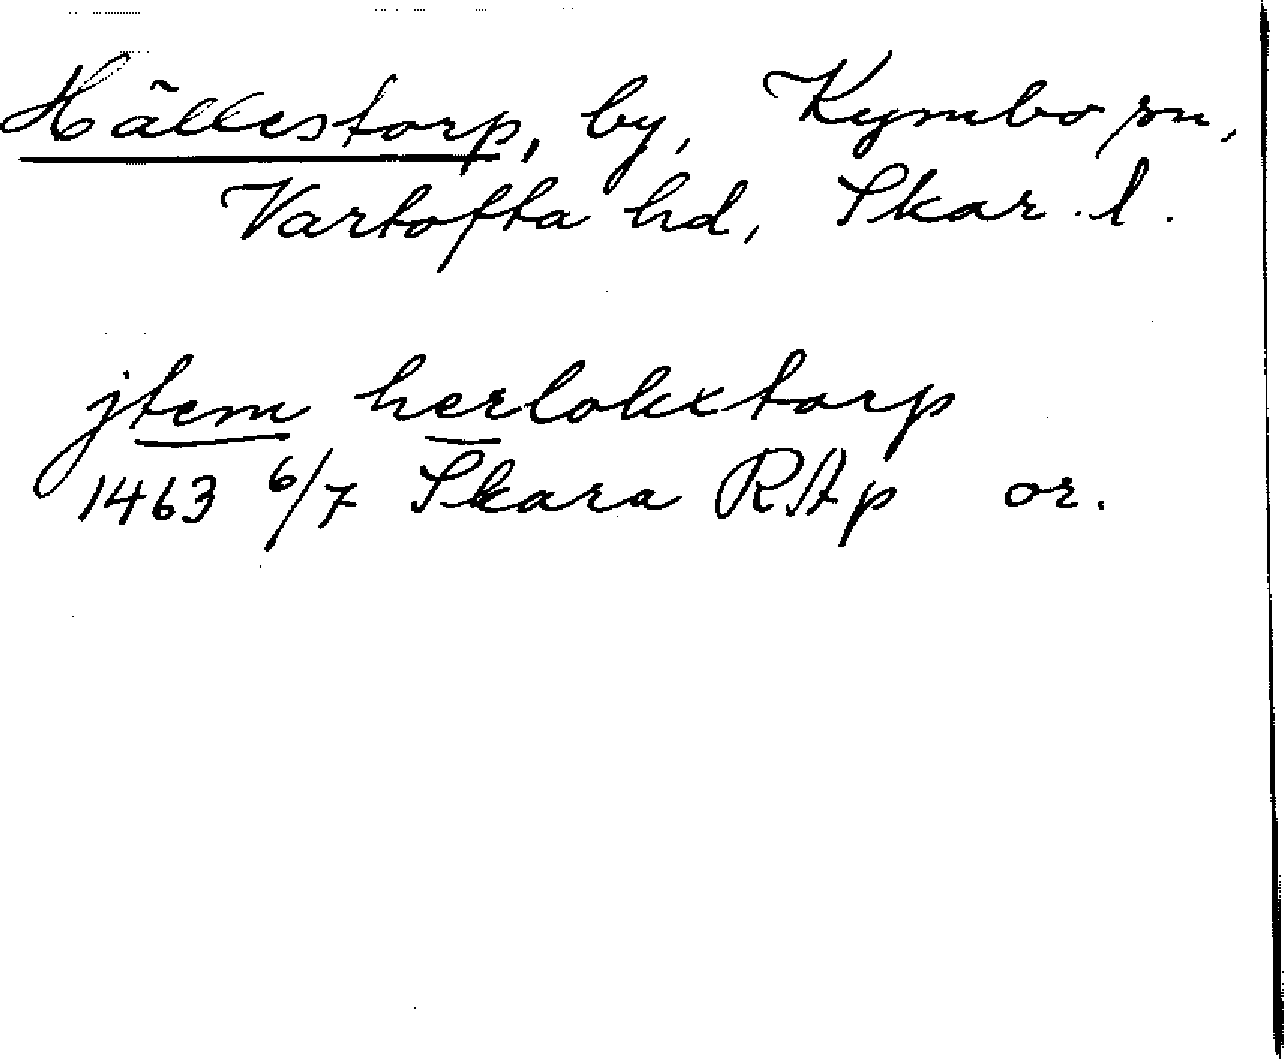 Hällestorp, by, Kymbo sn,
Vartofta hd, Skar. l.
jtem herlokxtorp
1463 6/7 Skara RAp or.